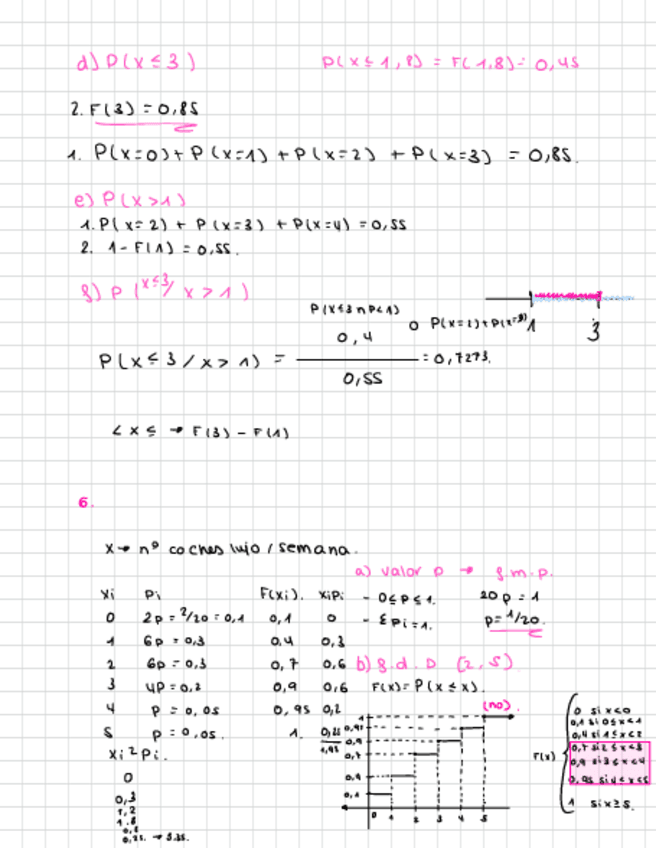 d) P(x ≤ 3)
P(x ≤ 1,8) = F(1,8) = 0,45
2. F(3) = 0,85
1. P(x=0) + P(x=1) + P(x=2) + P(x=3) = 0,85.
e) P(x>1)
1. P(x=2) + P(x=3) + P(x=4) = 0,55
2. 1 - F(1) = 0,55.
f) P(x≤3/x>1)
P(x≤3 ∩ P<1)
0,4
o P(x=2)+P(x=3)
1
3
P(x ≤ 3 / x > 1) =
= 0,7273.
0,55
< x ≤ → F(3) - F(1)
6.
x → nº coches lujo / semana.
a) valor p → f.m.p.
- 0≤p≤1.
20p = 1
- Σpi=1.
p= 1/20.
xi Pi F(xi). xiPi
0 2p = 2/20 = 0,1 0,1 0
1 6p = 0,3 0,4 0,3
2 6p = 0,3 0,7 0,6
3 4p = 0,2 0,9 0,6
4 p = 0,05 0,95 0,2
5 p = 0,05. 1. 0,25
1,95
b) f.d.D (2,5)
F(x)= P(x ≤ x).
(no)
1
0,95
0,9
0,7
0,4
0,1
0 1 2 3 4 5
F(x)
0 si x<0
0,1 si 0≤x<1
0,4 si 1≤x<2
0,7 si 2≤x<3
0,9 si 3≤x<4
0,95 si 4<x<5
1 si x≥5.
xi²Pi.
0
0,3
1,2
1.8